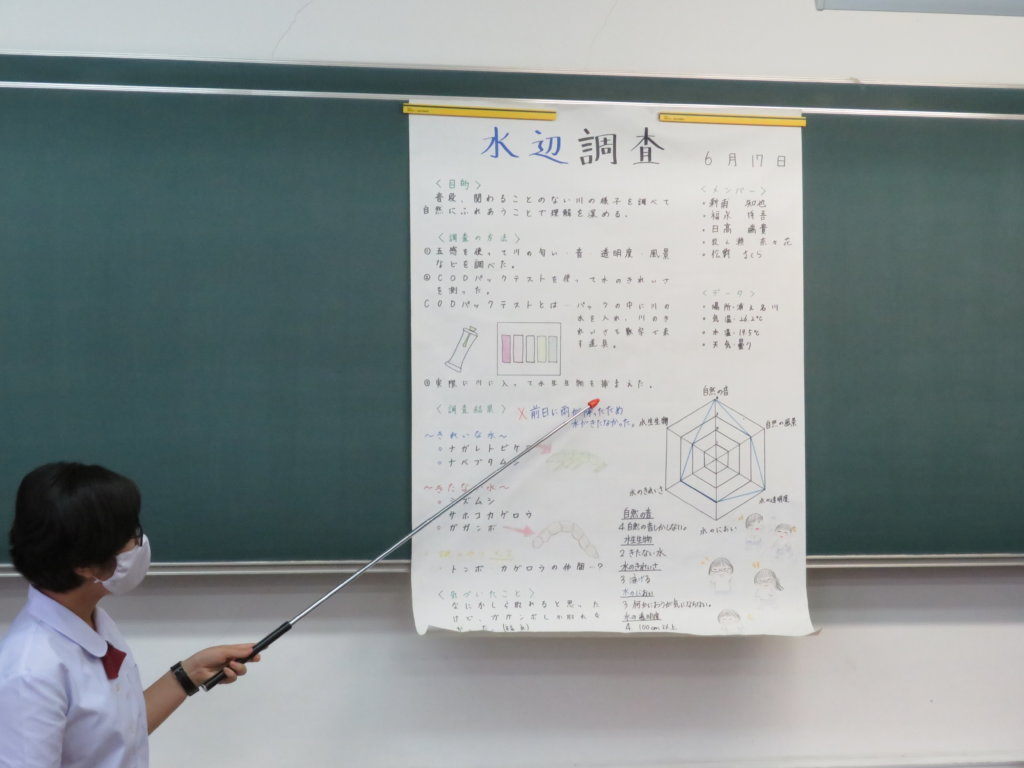 水辺調査
6月17日
〈目的〉
普段、関わることのない川の様子を調べて
自然にふれあうことで理解を深める。
〈メンバー〉
・福永
・日高
・松野 さくら
〈調査の方法〉
①五感を使って川の匂い・音・透明度・風景
などを調べた。
②CODパックテストを使って水のきれいさ
を測った。
CODパックテストとは…パックの中に川の
水を入れ、川のき
れいさを数字で表
す道具。
③実際に川に入って水生生物を捕まえた。
〈データ〉
・場所
・気温・26.2℃
・水温・19.5℃
・天気・曇り
〈調査結果〉
X前日に雨が降ったため
水がきたなかった。
〜きれいな水〜
○ナガレトビケラ
○ナベブタムシ
〜きたない水〜
○ミズムシ
○サホコカゲロウ
○ガガンボ
・トンボ・カゲロウの仲間…?
〈気づいたこと〉
なにかしら取れると思った
けど、ガガンボしか取れな
自然の音
自然の風景
水の透明度
水のにおい
水のきれいさ
水生生物
自然の音
4 自然の音しかしない。
水生生物
2 きたない水
水のきれいさ
3 泳げる
水のにおい
3 何かにおうが気にならない。
水の透明度
4 100cm以上